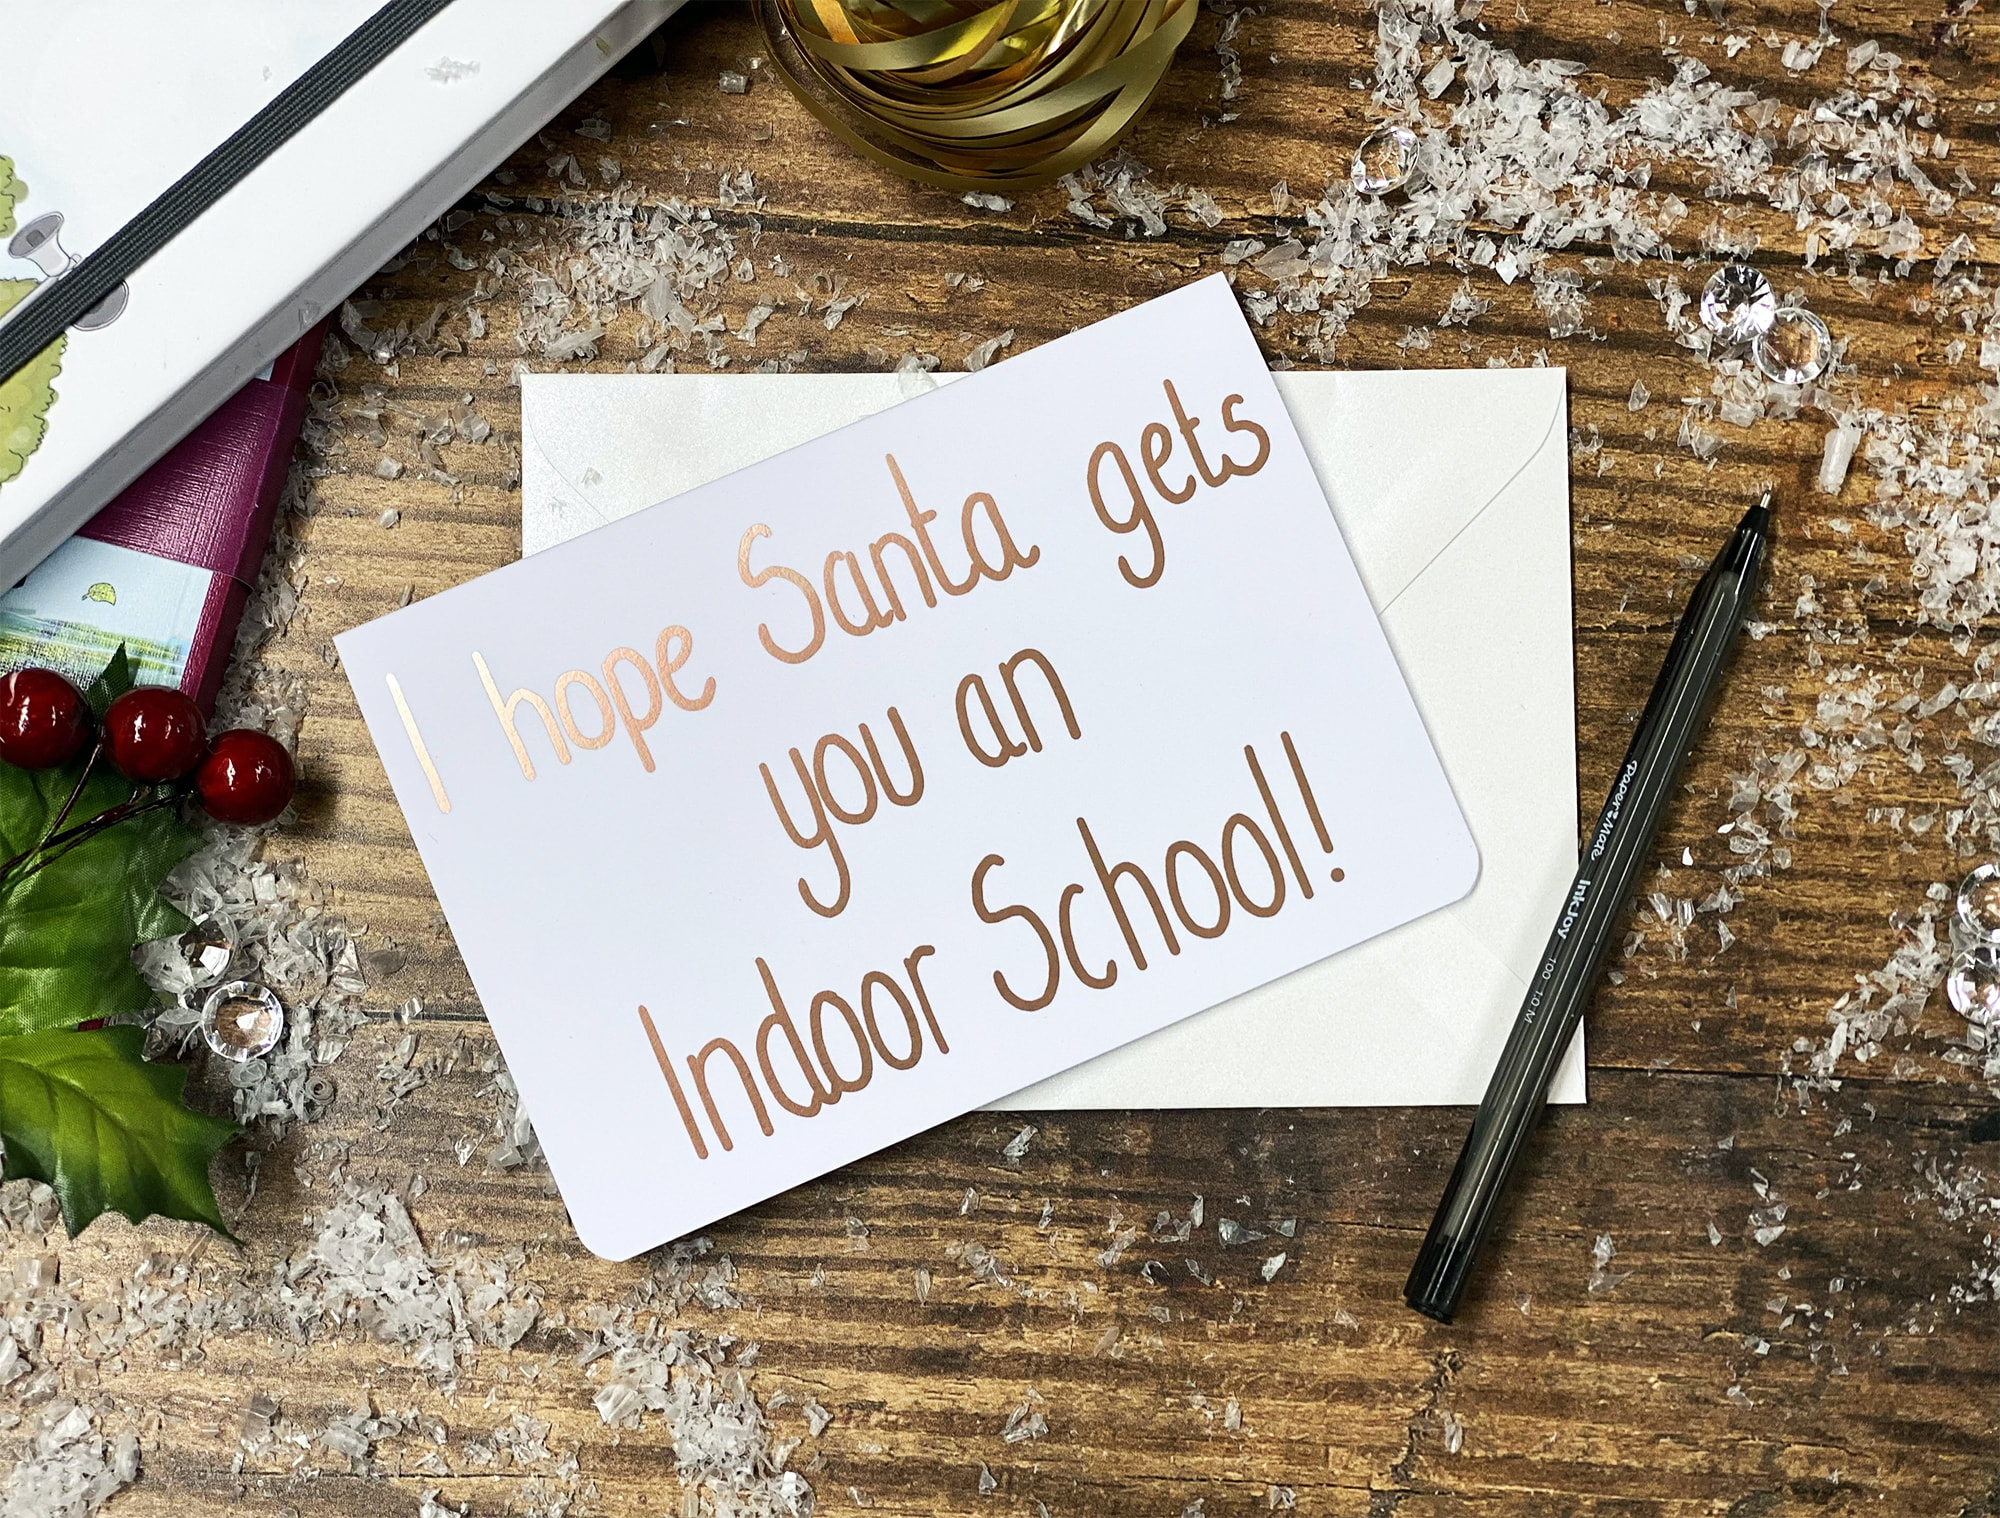 I hope Santa gets
you an
Indoor School!
paper mate InkJoy 100 · 1.0 M